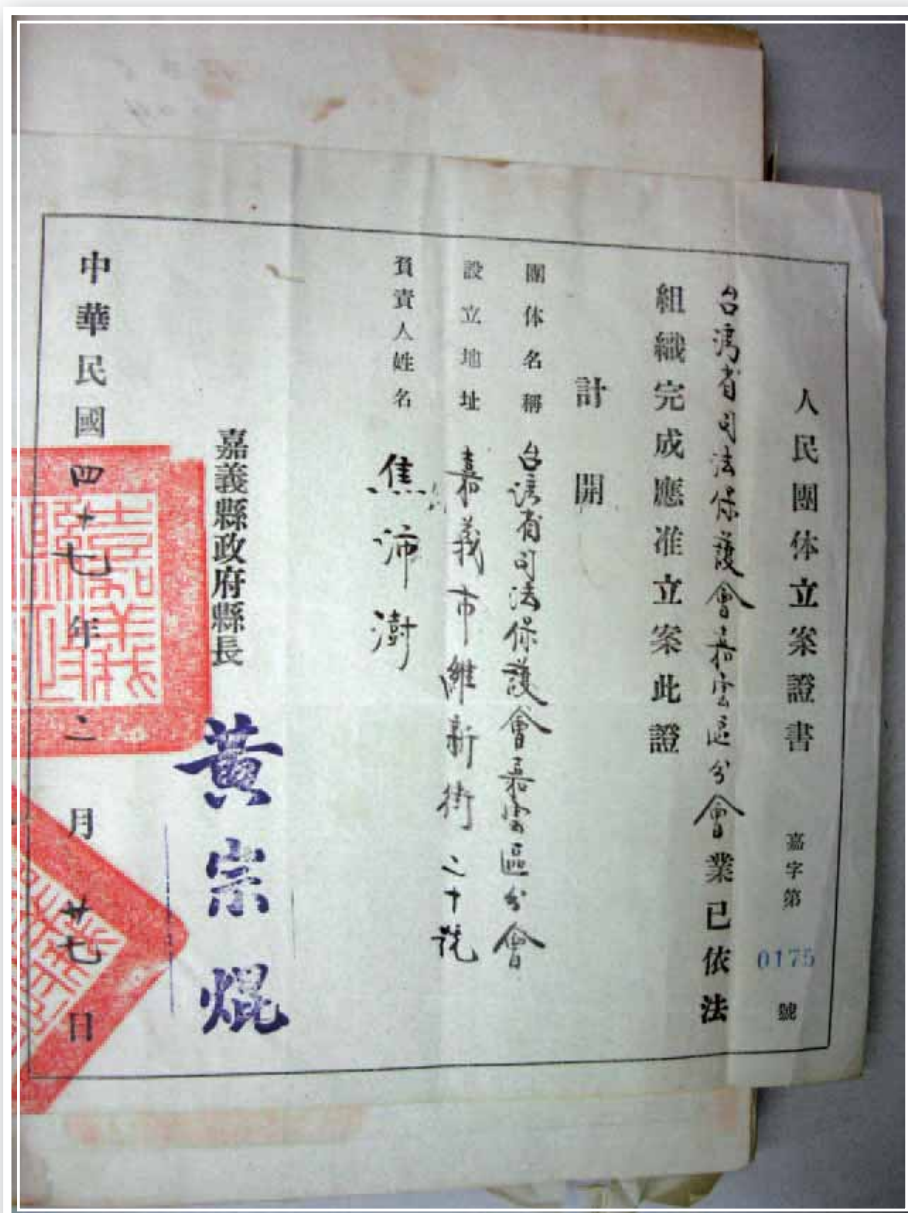 人民團体立案證書 嘉字第0175號
台湾省司法保護會嘉雲區分會業已依法
組織完成應准立案此證
計開
團体名稱 台湾省司法保護會嘉雲區分會
設立地址 嘉義市維新街二十號
負責人姓名 焦沛澍
嘉義縣政府縣長 黃宗焜
中華民國四十七年二月廿七日